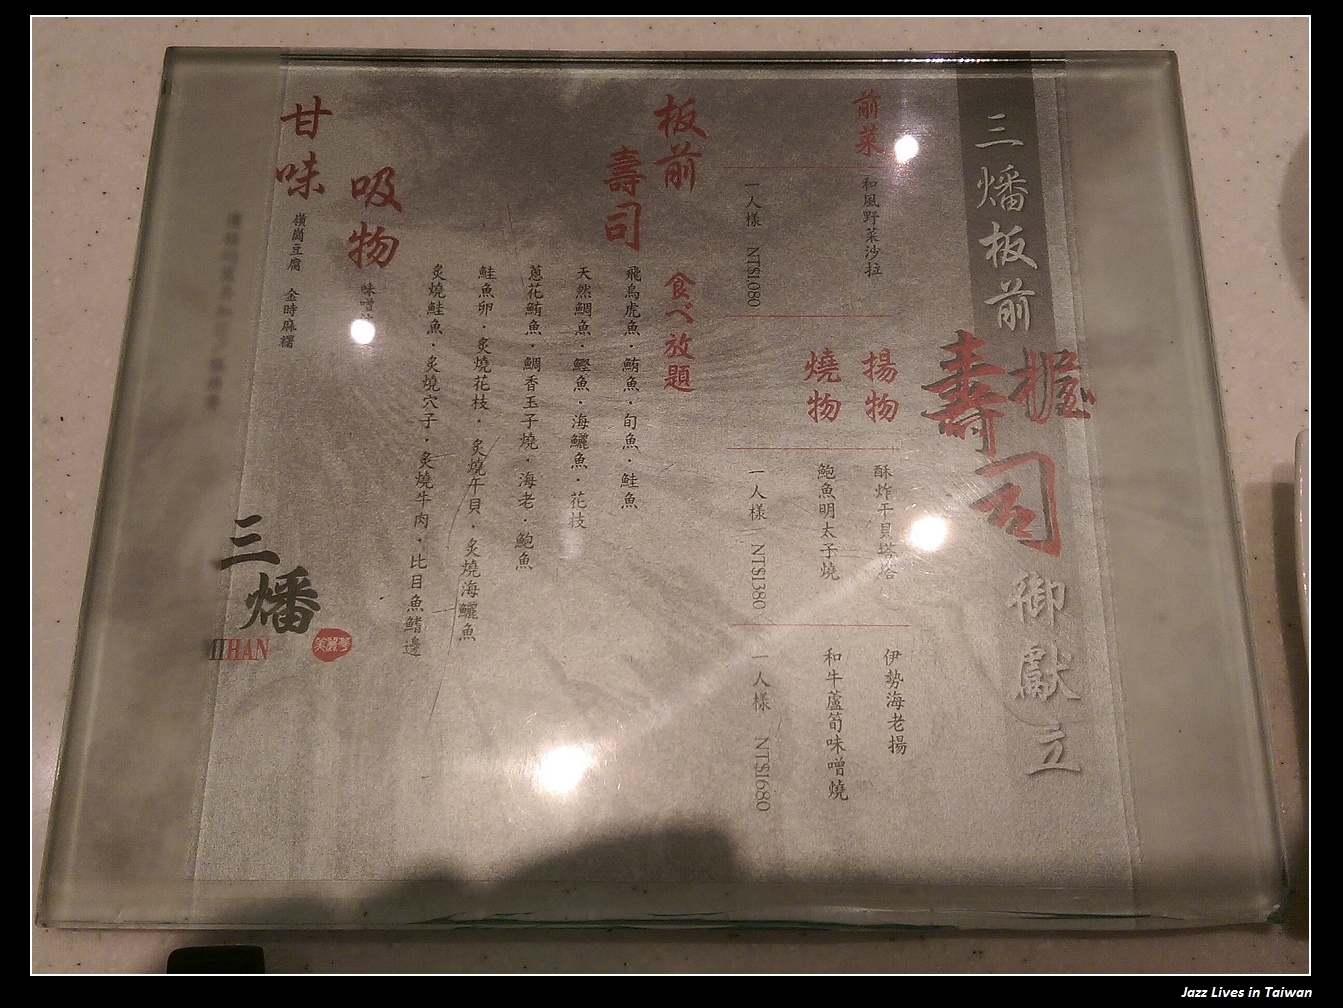 三燔板前
握壽司
御獻立
前菜
和風野菜沙拉
一人樣 NT$1080
揚物
燒物
酥炸干貝塔塔
鮑魚明太子燒
一人樣 NT$1380
伊勢海老揚
和牛蘆筍味噌燒
一人樣 NT$1680
板前
壽司
食べ放題
飛烏虎魚・鮪魚・旬魚・鮭魚
天然鯛魚・鰹魚・海鱺魚・花枝
蔥花鮪魚・鯛香玉子燒・海老・鮑魚
鮭魚卵・炙燒花枝・炙燒干貝・炙燒海鱺魚
炙燒鮭魚・炙燒穴子・炙燒牛肉・比目魚鰭邊
吸物
味噌
甘味
嶺崗豆腐 金時麻糬
三燔
HAN
美麗華
Jazz Lives in Taiwan